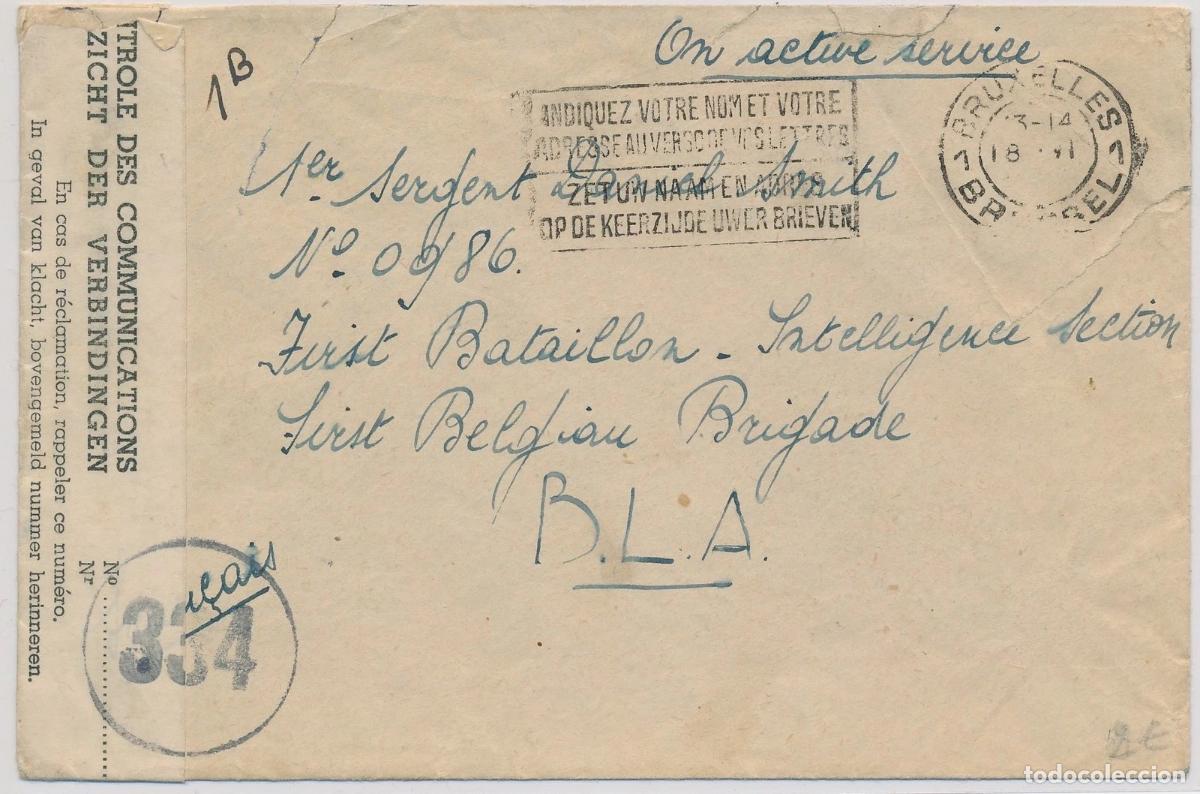 On active service
1B
INDIQUEZ VOTRE NOM ET VOTRE
ADRESSE AU VERSO DE VOS LETTRES
ZET UW NAAM EN ADRES
OP DE KEERZIJDE UWER BRIEVEN
BRUXELLES
13-14
18 VI
1 BRUSSEL 1
1er Sergent Daniel Smith
No 0986.
First Bataillon - Intelligence Section
First Belgian Brigade
B.L.A.
TROLE DES COMMUNICATIONS
ZICHT DER VERBINDINGEN
No
Nr
En cas de réclamation, rappeler ce numéro.
In geval van klacht, bovengemeld nummer herinneren.
çais
334
todocoleccion